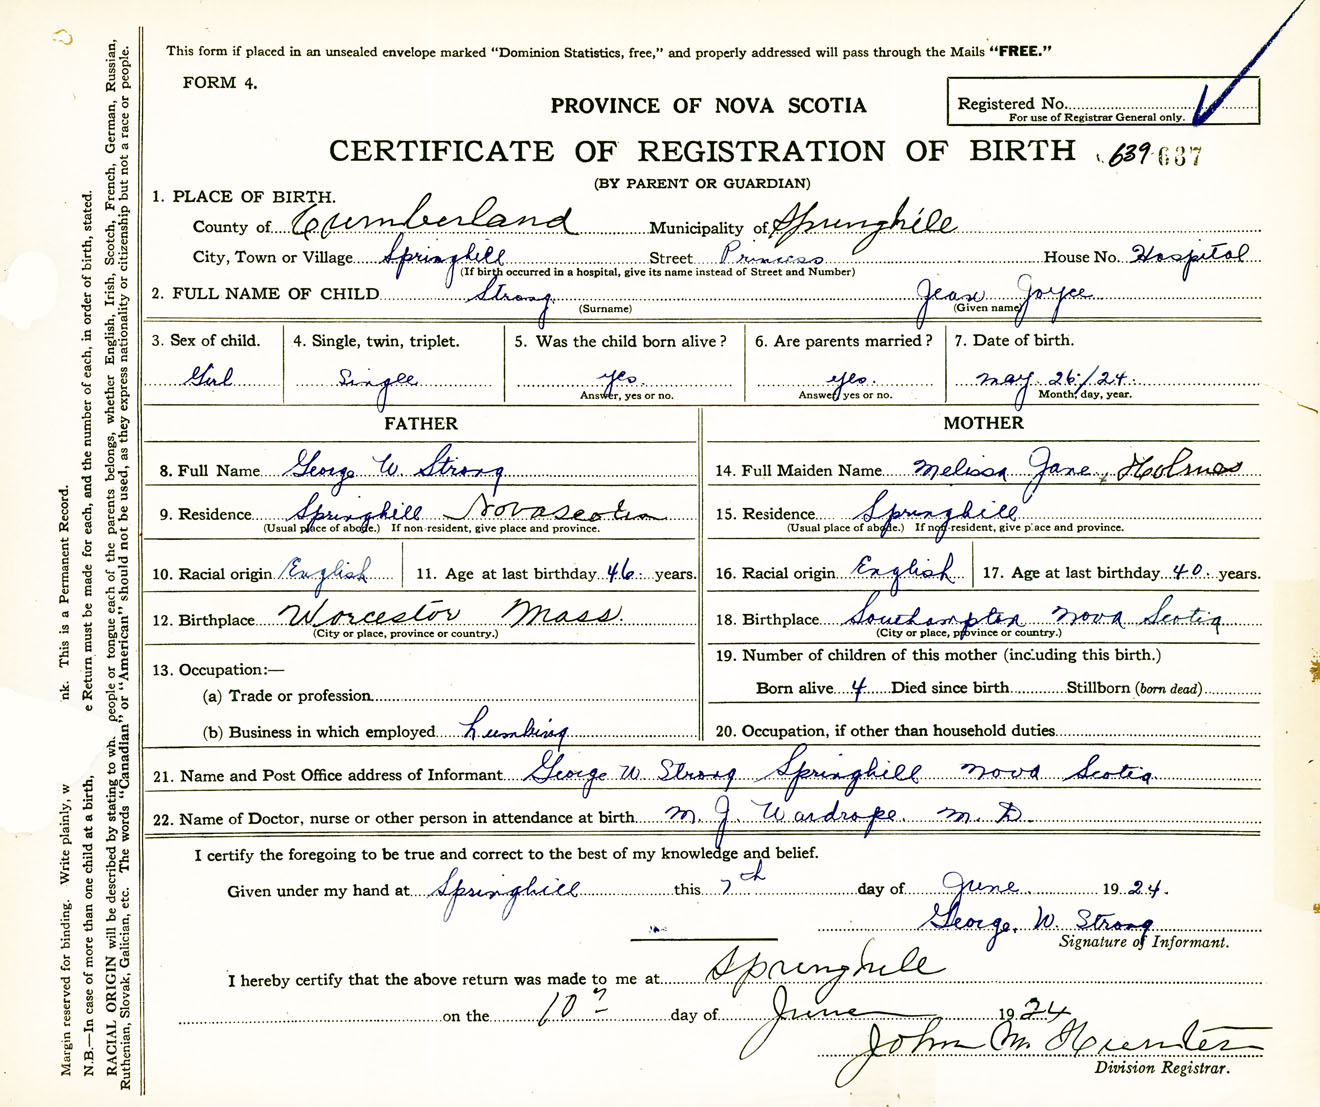 This form if placed in an unsealed envelope marked "Dominion Statistics, free," and properly addressed will pass through the Mails "FREE."
FORM 4.
PROVINCE OF NOVA SCOTIA
Registered No.
For use of Registrar General only.
CERTIFICATE OF REGISTRATION OF BIRTH 639 637
(BY PARENT OR GUARDIAN)
1. PLACE OF BIRTH.
County of Cumberland Municipality of Springhill
City, Town or Village Springhill Street Princess House No. Hospital
(If birth occurred in a hospital, give its name instead of Street and Number)
2. FULL NAME OF CHILD Strong Jean Joyce
(Surname) (Given name)
3. Sex of child. 4. Single, twin, triplet. 5. Was the child born alive? 6. Are parents married? 7. Date of birth.
Girl Single yes. yes. May 26/24.
Answer, yes or no. Answer, yes or no. Month, day, year.
FATHER MOTHER
8. Full Name George W Strong 14. Full Maiden Name Melissa Jane Holmes
9. Residence Springhill Nova scotia 15. Residence Springhill
(Usual place of abode.) If non-resident, give place and province. (Usual place of abode.) If non-resident, give place and province.
10. Racial origin English 11. Age at last birthday 46 years. 16. Racial origin English 17. Age at last birthday 40 years.
12. Birthplace Worcestor Mass. 18. Birthplace Southampton Nova Scotia
(City or place, province or country.) (City or place, province or country.)
13. Occupation:— 19. Number of children of this mother (including this birth.)
(a) Trade or profession Born alive 4 Died since birth Stillborn (born dead)
(b) Business in which employed Lumbing 20. Occupation, if other than household duties
21. Name and Post Office address of Informant George W Strong Springhill Nova Scotia
22. Name of Doctor, nurse or other person in attendance at birth M. J. Wardrope. M. D.
I certify the foregoing to be true and correct to the best of my knowledge and belief.
Given under my hand at Springhill this 7th day of June 1924.
George. W. Strong
Signature of Informant.
I hereby certify that the above return was made to me at Springhill
on the 10 day of June 1924
John M Hunter
Division Registrar.
Margin reserved for binding. Write plainly, w nk. This is a Permanent Record.
N.B.—In case of more than one child at a birth, e Return must be made for each, and the number of each, in order of birth, stated.
RACIAL ORIGIN will be described by stating to wh people or tongue each of the parents belongs, whether English, Irish, Scotch, French, German, Russian,
Ruthenian, Slovak, Galician, etc. The words "Canadian" or "American" should not be used, as they express nationality or citizenship but not a race or people.